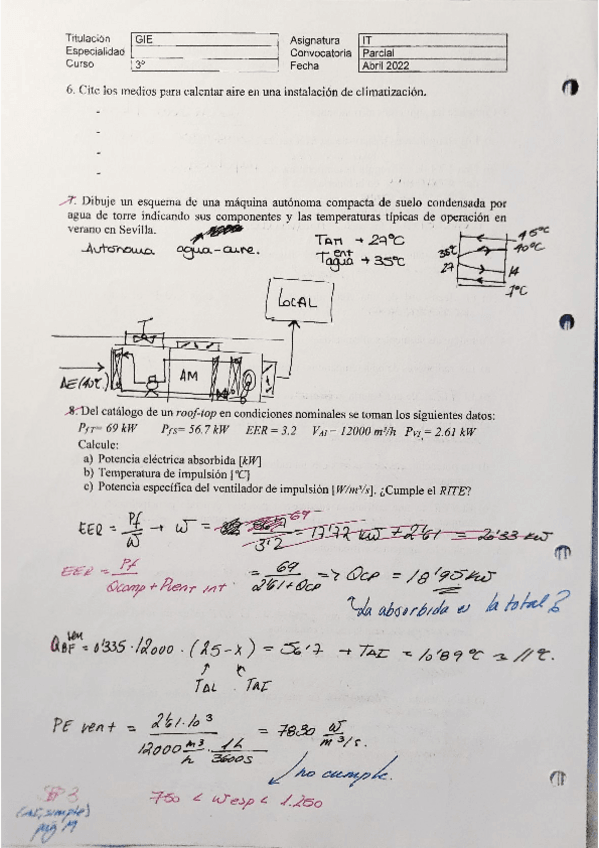 Titulación GIE Asignatura IT
Especialidad Convocatoria Parcial
Curso 3º Fecha Abril 2022
6. Cite los medios para calentar aire en una instalación de climatización.
-
-
-
-
-
7. Dibuje un esquema de una máquina autónoma compacta de suelo condensada por
agua de torre indicando sus componentes y las temperaturas típicas de operación en
verano en Sevilla.
Autónoma agua-aire.
TAM → 27ºC
Tagua ent → 35ºC
45ºC
40ºC
35ºC
27
14
7ºC
LOCAL
AE(40ºC)
AM
8. Del catálogo de un roof-top en condiciones nominales se toman los siguientes datos:
PfT= 69 kW PfS= 56.7 kW EER = 3.2 VAI = 12000 m³/h PVI = 2.61 kW
Calcule:
a) Potencia eléctrica absorbida [kW]
b) Temperatura de impulsión [ºC]
c) Potencia específica del ventilador de impulsión [W/m³/s]. ¿Cumple el RITE?
EER = Pf/W → W = 69/3'2 = 17'72 kW + 2'61 = 20'33 kW
EER = Pf/Qcomp + Pvent int = 69/2'61+Qcp => Qcp = 18'95 kW
La absorbida es la total?
QBF sen = 0'335·12000·(25-x) = 56'7 → TAI = 10'89ºC ≈ 11ºC.
TAL TAI
PE vent = 2'61·10³/12000 m³/h · 1h/3600s = 7830 W/m³/s.
no cumple.
750 < Wesp < 1.250
3
pág 19